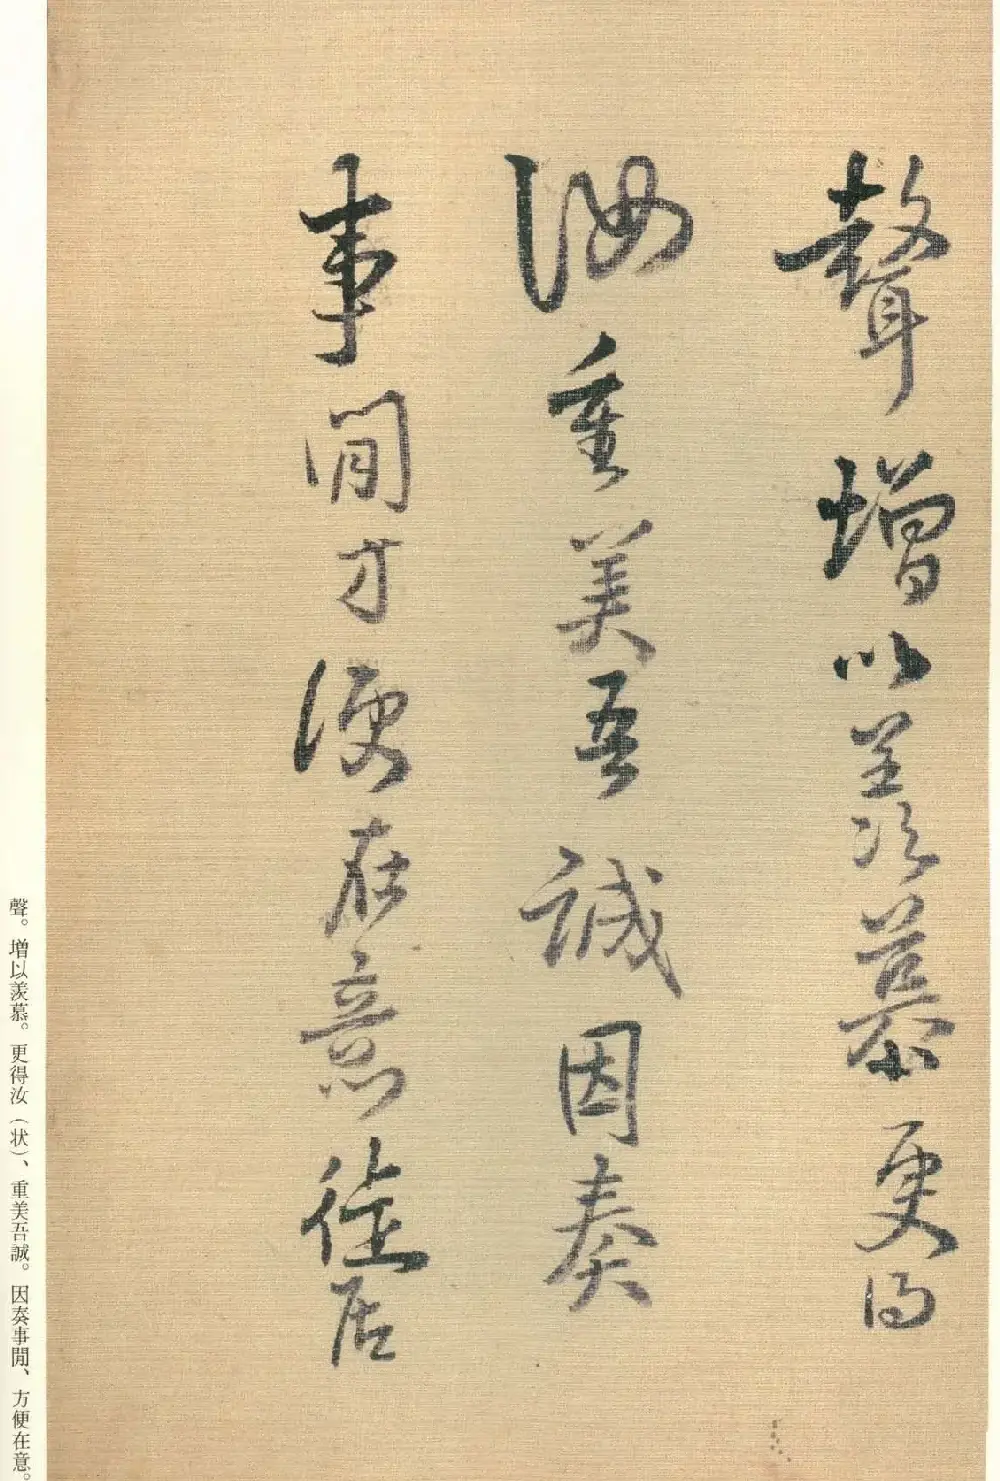 聲增以羨慕更得
汝重美吾誠因奏
事間方便在意徃居
聲。增以羨慕。更得汝（状）、重美吾誠。因奏事閒、方便在意。